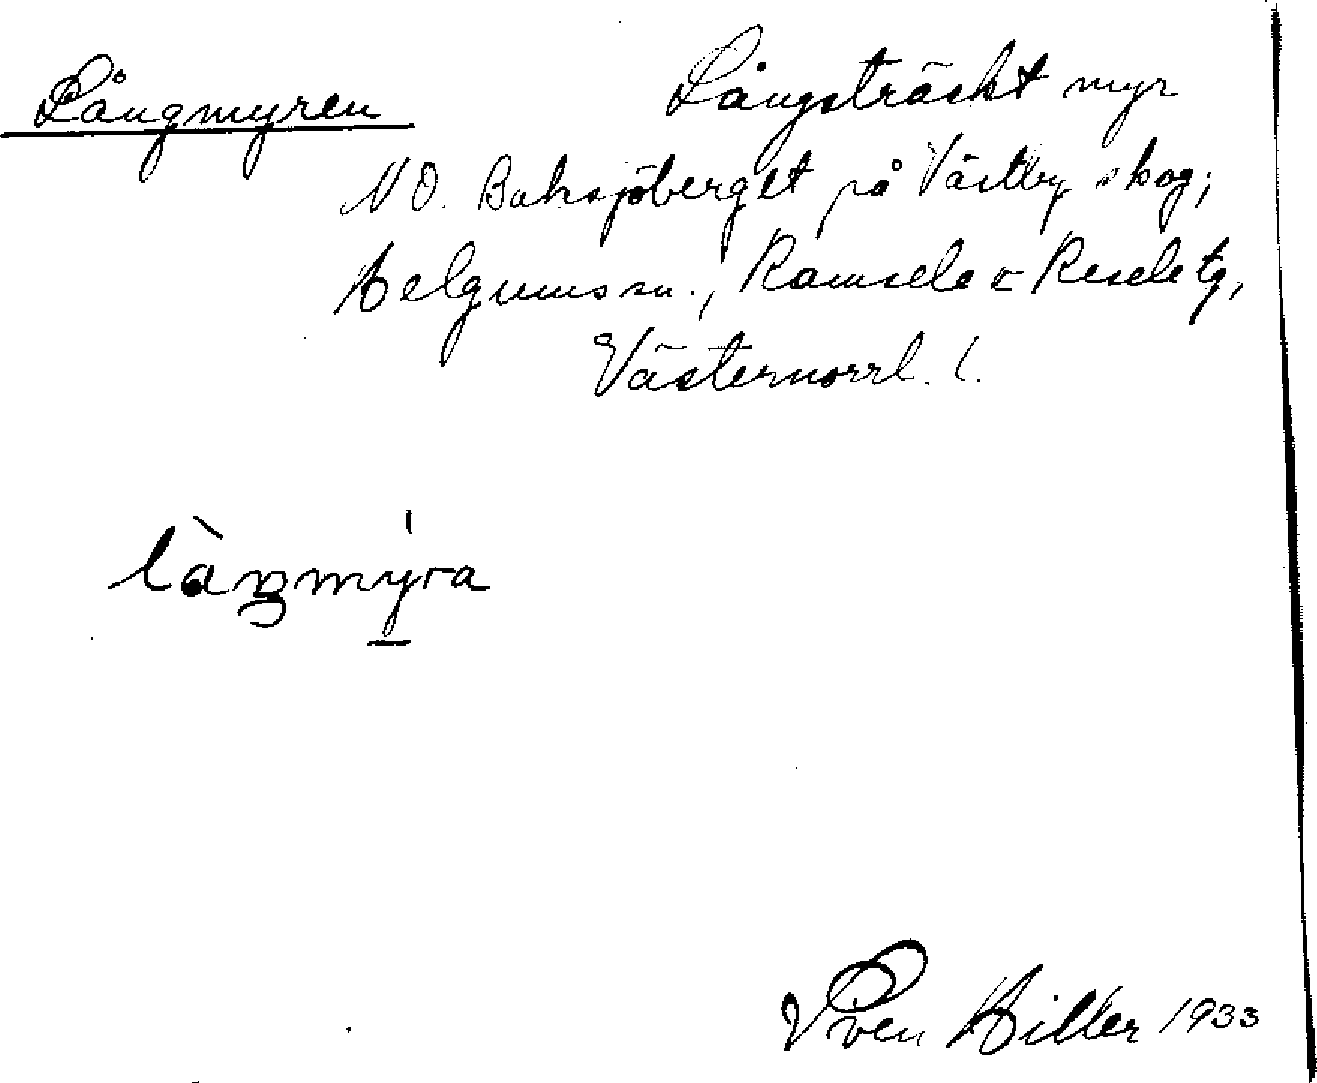 Långmyren
Långsträckt myr
NO. Baksjöberget på Västby skog;
Helgums sn., Ramsele o Resele tg,
Västernorrl. l.
làŋmýra
Sven Hiller 1933